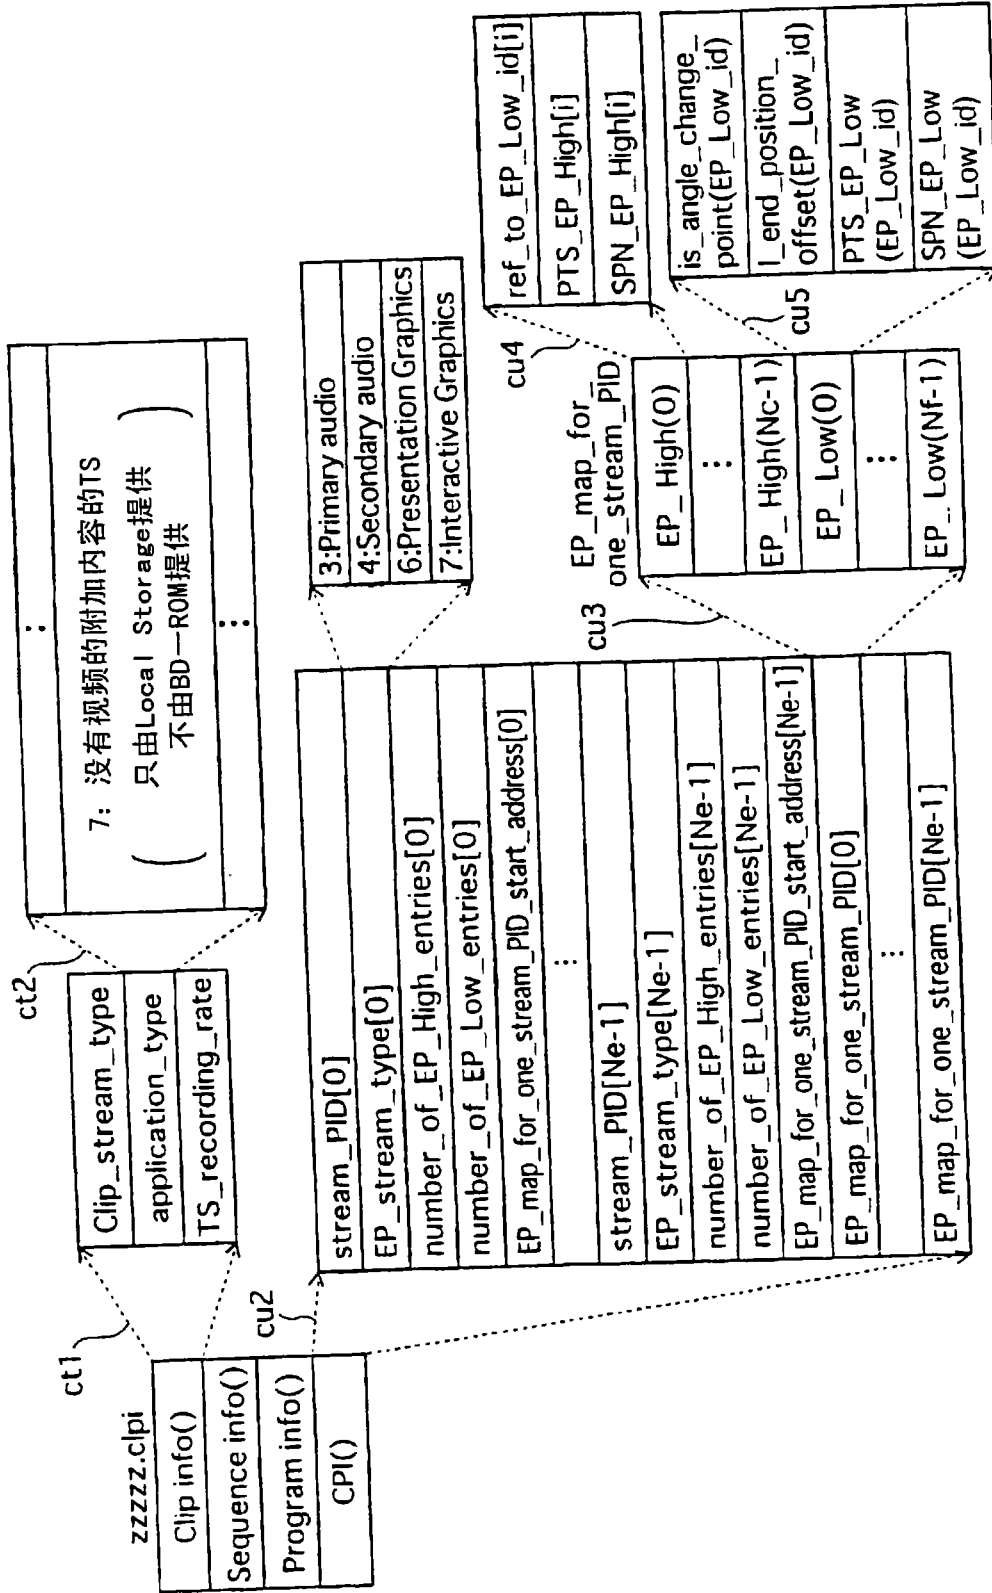 zzzzz.clpi
Clip info()
Sequence info()
Program info()
CPI()
ct1
Clip_stream_type
application_type
TS_recording_rate
ct2
⋮
7: 没有视频的附加内容的TS
(只由Local Storage提供
不由BD—ROM提供)
⋮
cu2
stream_PID[0]
EP_stream_type[0]
number_of_EP_High_entries[0]
number_of_EP_Low_entries[0]
EP_map_for_one_stream_PID_start_address[0]
⋮
stream_PID[Ne-1]
EP_stream_type[Ne-1]
number_of_EP_High_entries[Ne-1]
number_of_EP_Low_entries[Ne-1]
EP_map_for_one_stream_PID_start_address[Ne-1]
EP_map_for_one_stream_PID[0]
⋮
EP_map_for_one_stream_PID[Ne-1]
3:Primary audio
4:Secondary audio
6:Presentation Graphics
7:Interactive Graphics
cu3
EP_map_for_
one_stream_PID
EP_High(0)
⋮
EP_High(Nc-1)
EP_Low(0)
⋮
EP_Low(Nf-1)
cu4
ref_to_EP_Low_id[i]
PTS_EP_High[i]
SPN_EP_High[i]
cu5
is_angle_change_
point(EP_Low_id)
I_end_position_
offset(EP_Low_id)
PTS_EP_Low
(EP_Low_id)
SPN_EP_Low
(EP_Low_id)